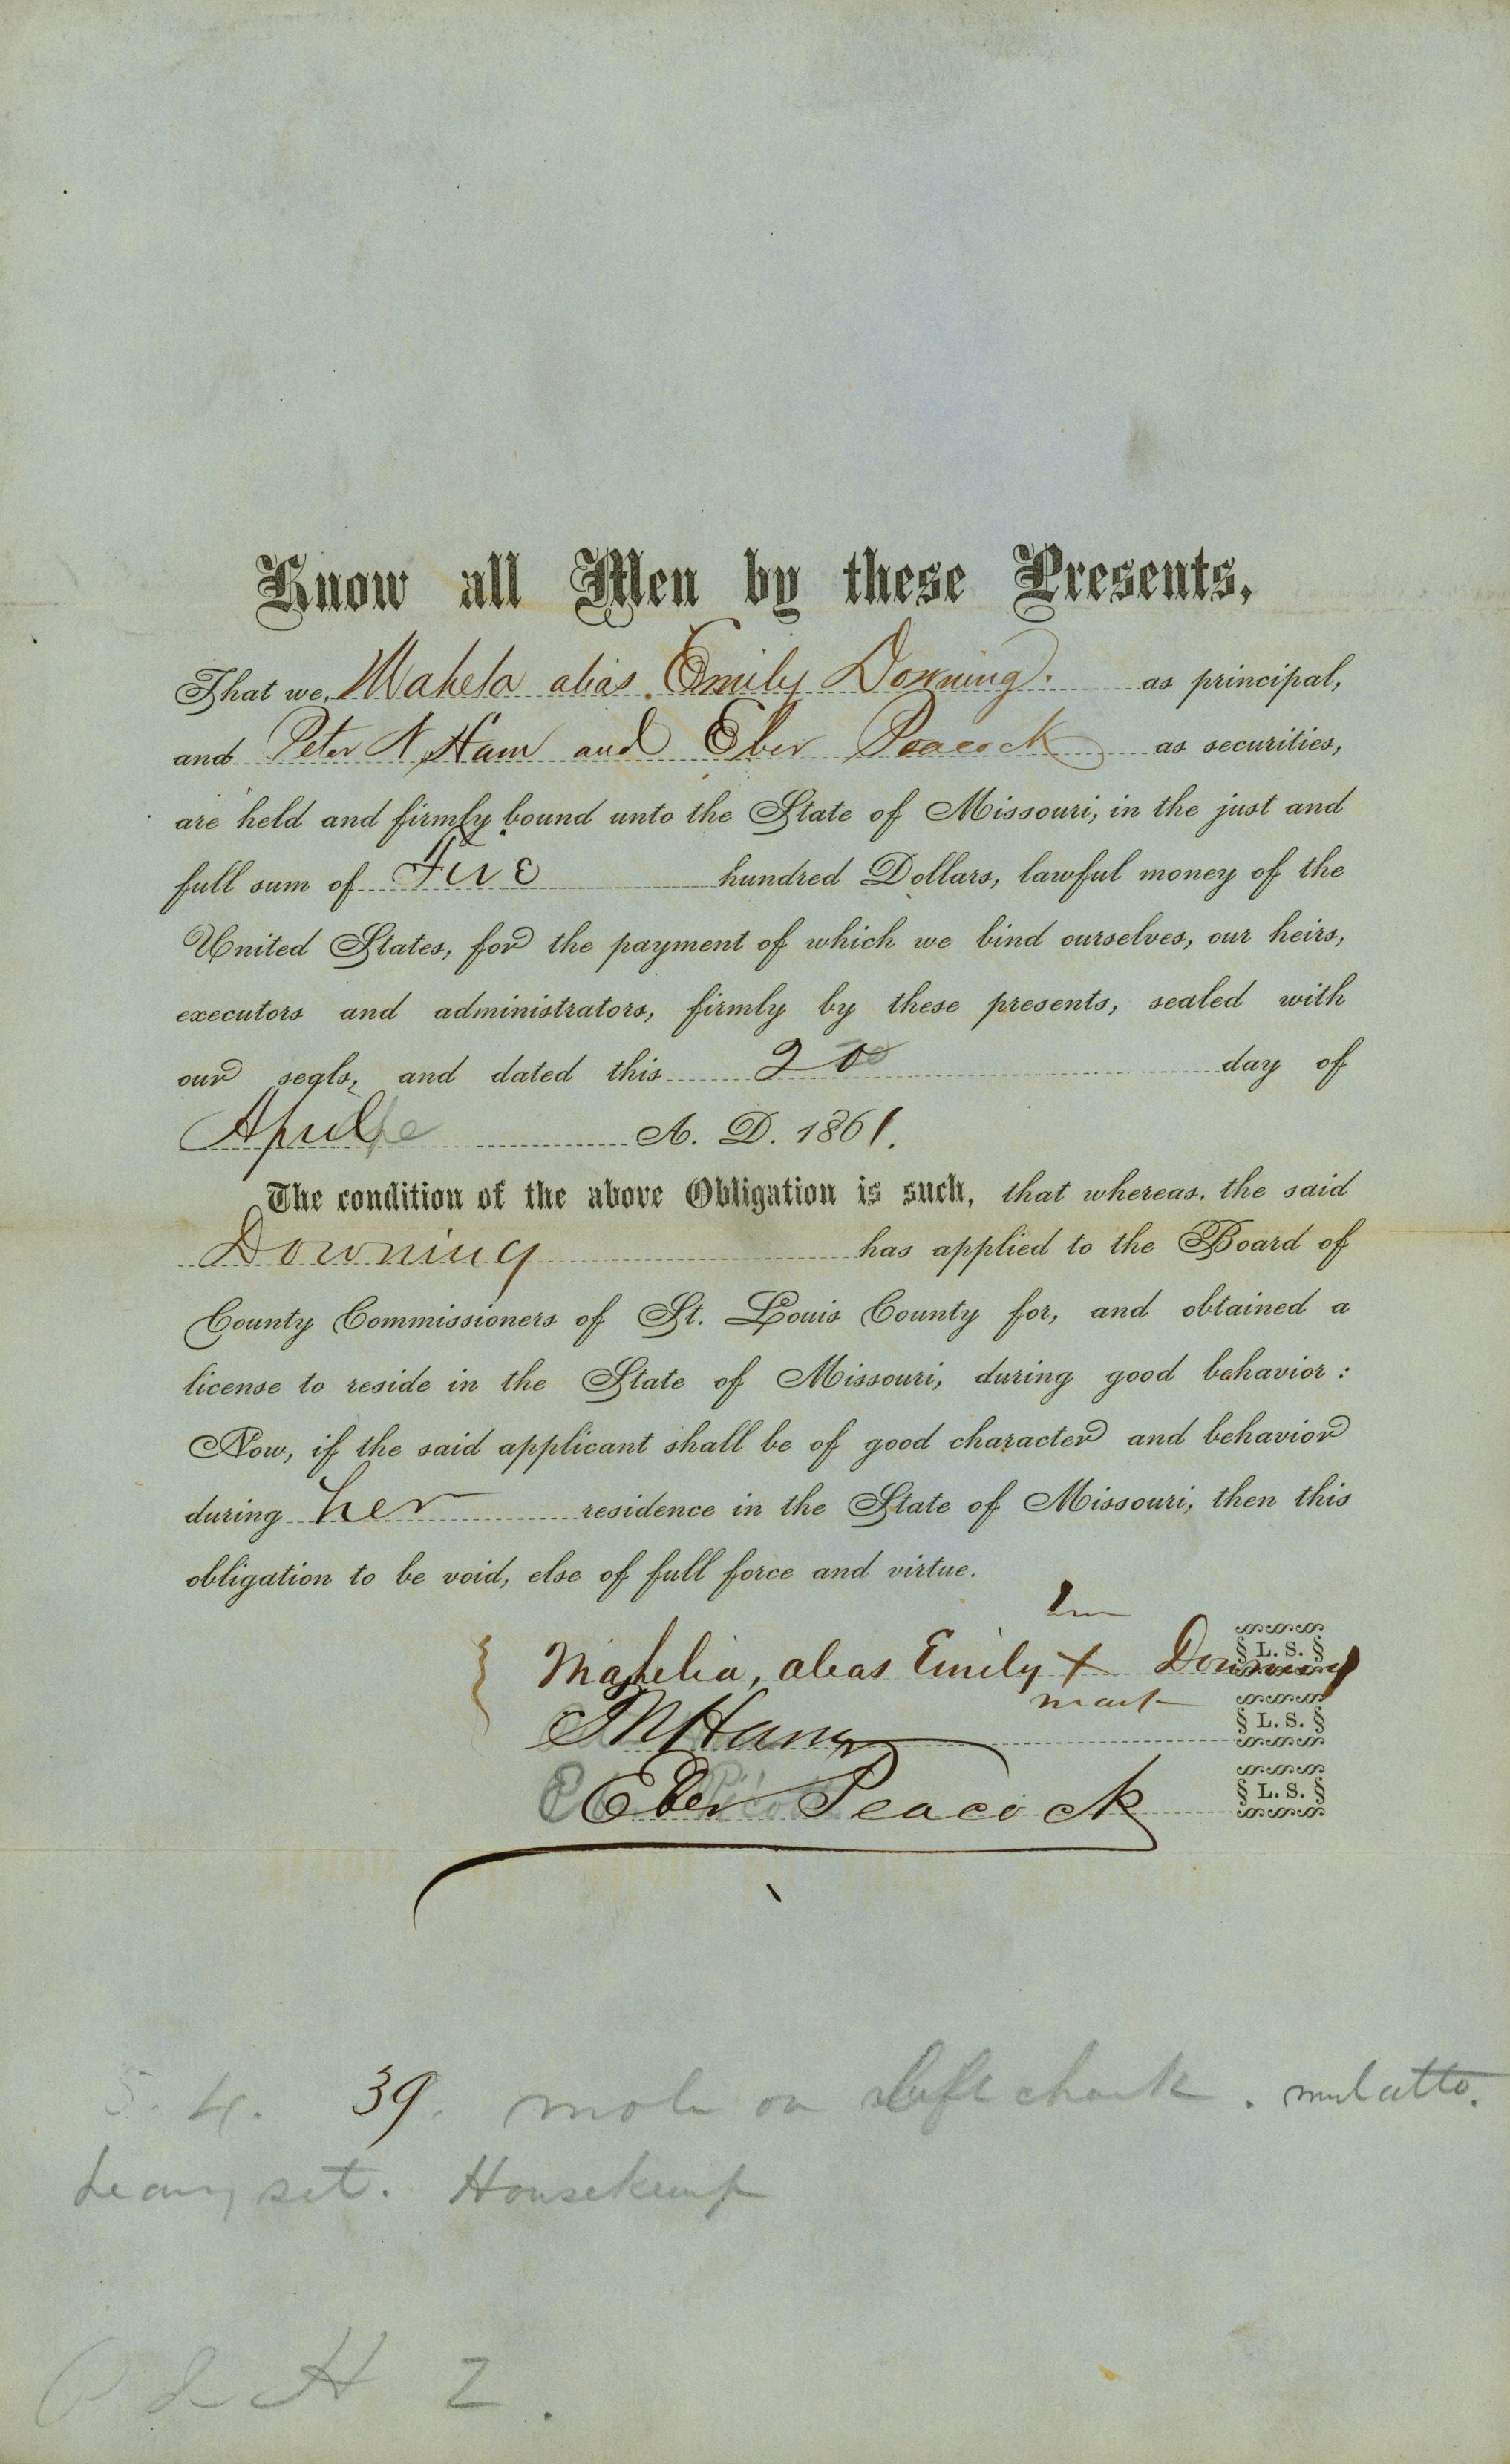 Know all Men by these Presents,
That we, Mahela alias Emily Downing. as principal,
and Peter N Ham and Eber Peacock as securities,
are held and firmly bound unto the State of Missouri, in the just and
full sum of Five hundred Dollars, lawful money of the
United States, for the payment of which we bind ourselves, our heirs,
executors and administrators, firmly by these presents, sealed with
our seals, and dated this 20 day of
April A. D. 1861.
The condition of the above Obligation is such, that whereas, the said
Downing has applied to the Board of
County Commissioners of St. Louis County for, and obtained a
license to reside in the State of Missouri, during good behavior :
Now, if the said applicant shall be of good character and behavior
during her residence in the State of Missouri, then this
obligation to be void, else of full force and virtue.
her
Mahelia, alias Emily + Downing L. S.
mark
PNHam L. S.
Eber Peacock L. S.
5. 4. 39. mole on left cheek. mulatto.
heavy set. Housekeep
P & H 2.